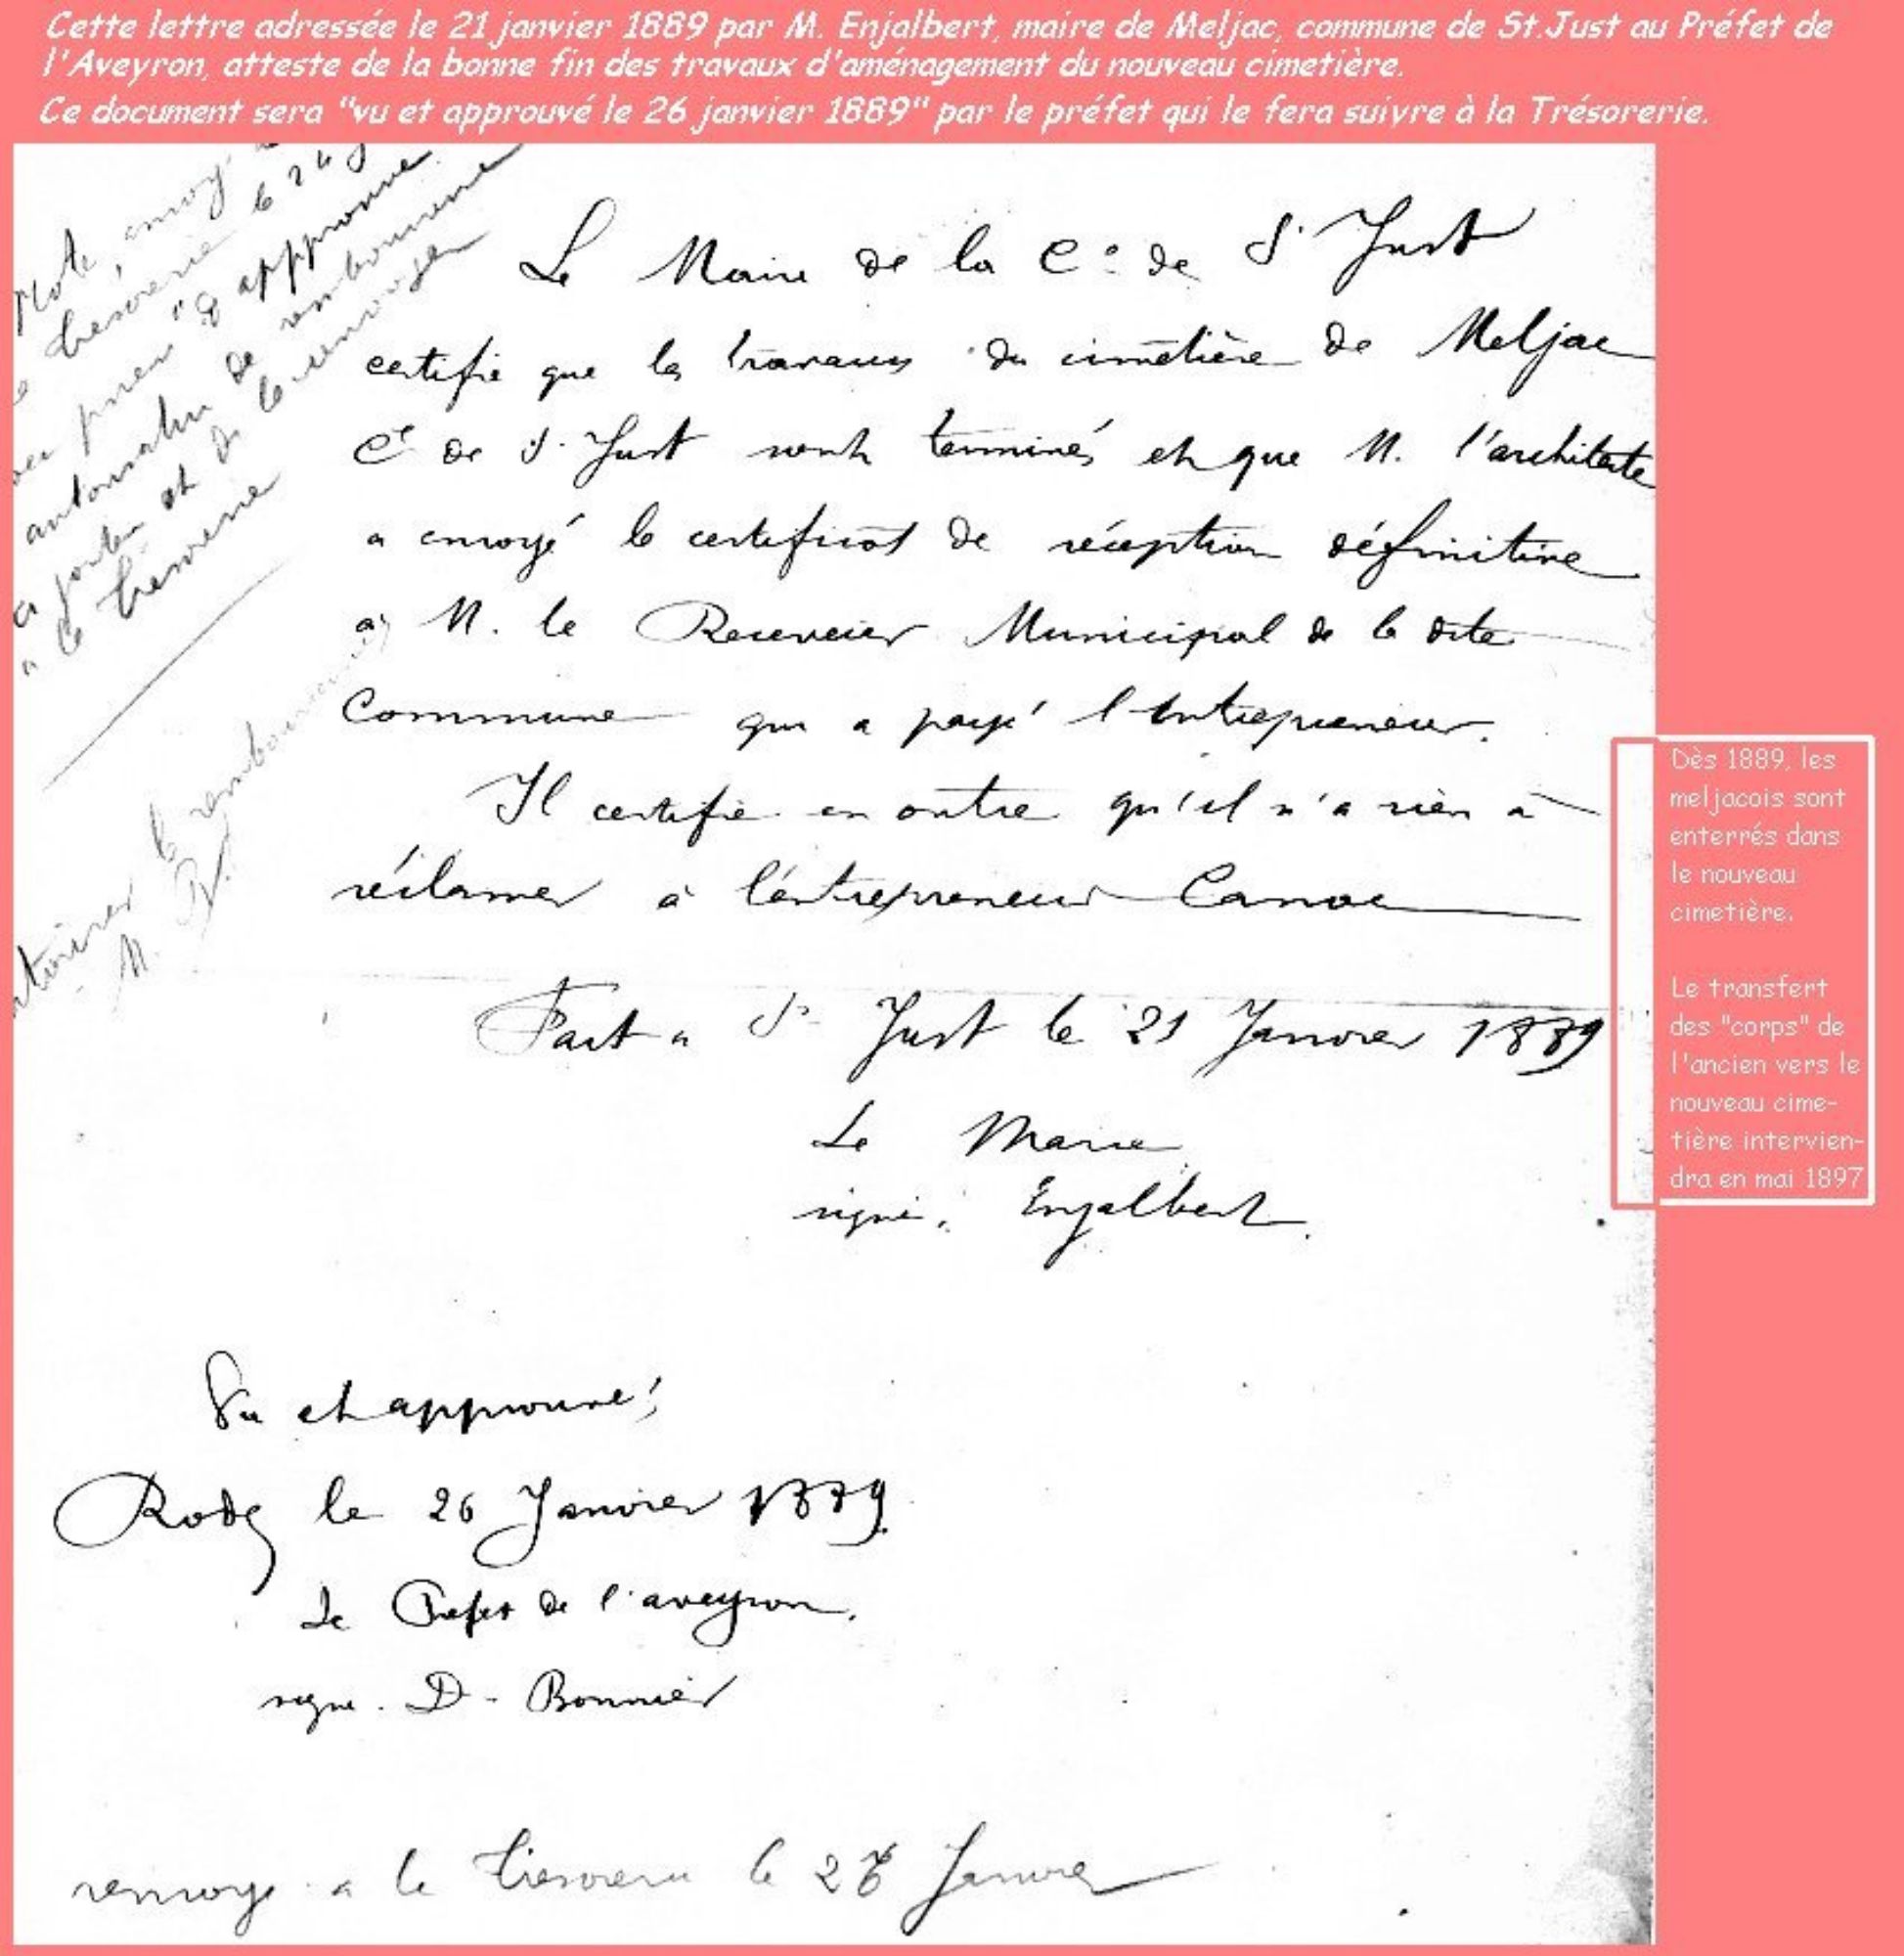 Cette lettre adressée le 21 janvier 1889 par M. Enjalbert, maire de Meljac, commune de St.Just au Préfet de
l'Aveyron, atteste de la bonne fin des travaux d'aménagement du nouveau cimetière.
Ce document sera "vu et approuvé le 26 janvier 1889" par le préfet qui le fera suivre à la Trésorerie.
Note, envoyé
tresorerie le 24 J
approuve
de remboursement
le renvoyer
a la tresorerie
le remboursement
M.
Le Maire de la Cne de St Just
certifie que les travaux du cimetière de Meljac
Cne de St Just sont terminés et que M. l'architecte
a envoyé le certificat de réception définitive
à M. le Receveur Municipal de la dite
Commune qui a payé l'entrepreneur.
Il certifie en outre qu'il n'a rien à
réclamer à l'entrepreneur
Fait a St Just le 21 Janvier 1889
Le Maire
signé, Enjalbert.
Dès 1889, les
meljacois sont
enterrés dans
le nouveau
cimetière.
Le transfert
des "corps" de
l'ancien vers le
nouveau cime-
tière intervien-
dra en mai 1897
Vu et approuvé!
Rodez le 26 Janvier 1889.
Le Prefet de l'aveyron.
signe. D - Bonnier
renvoye a la tresorerie le Janvier